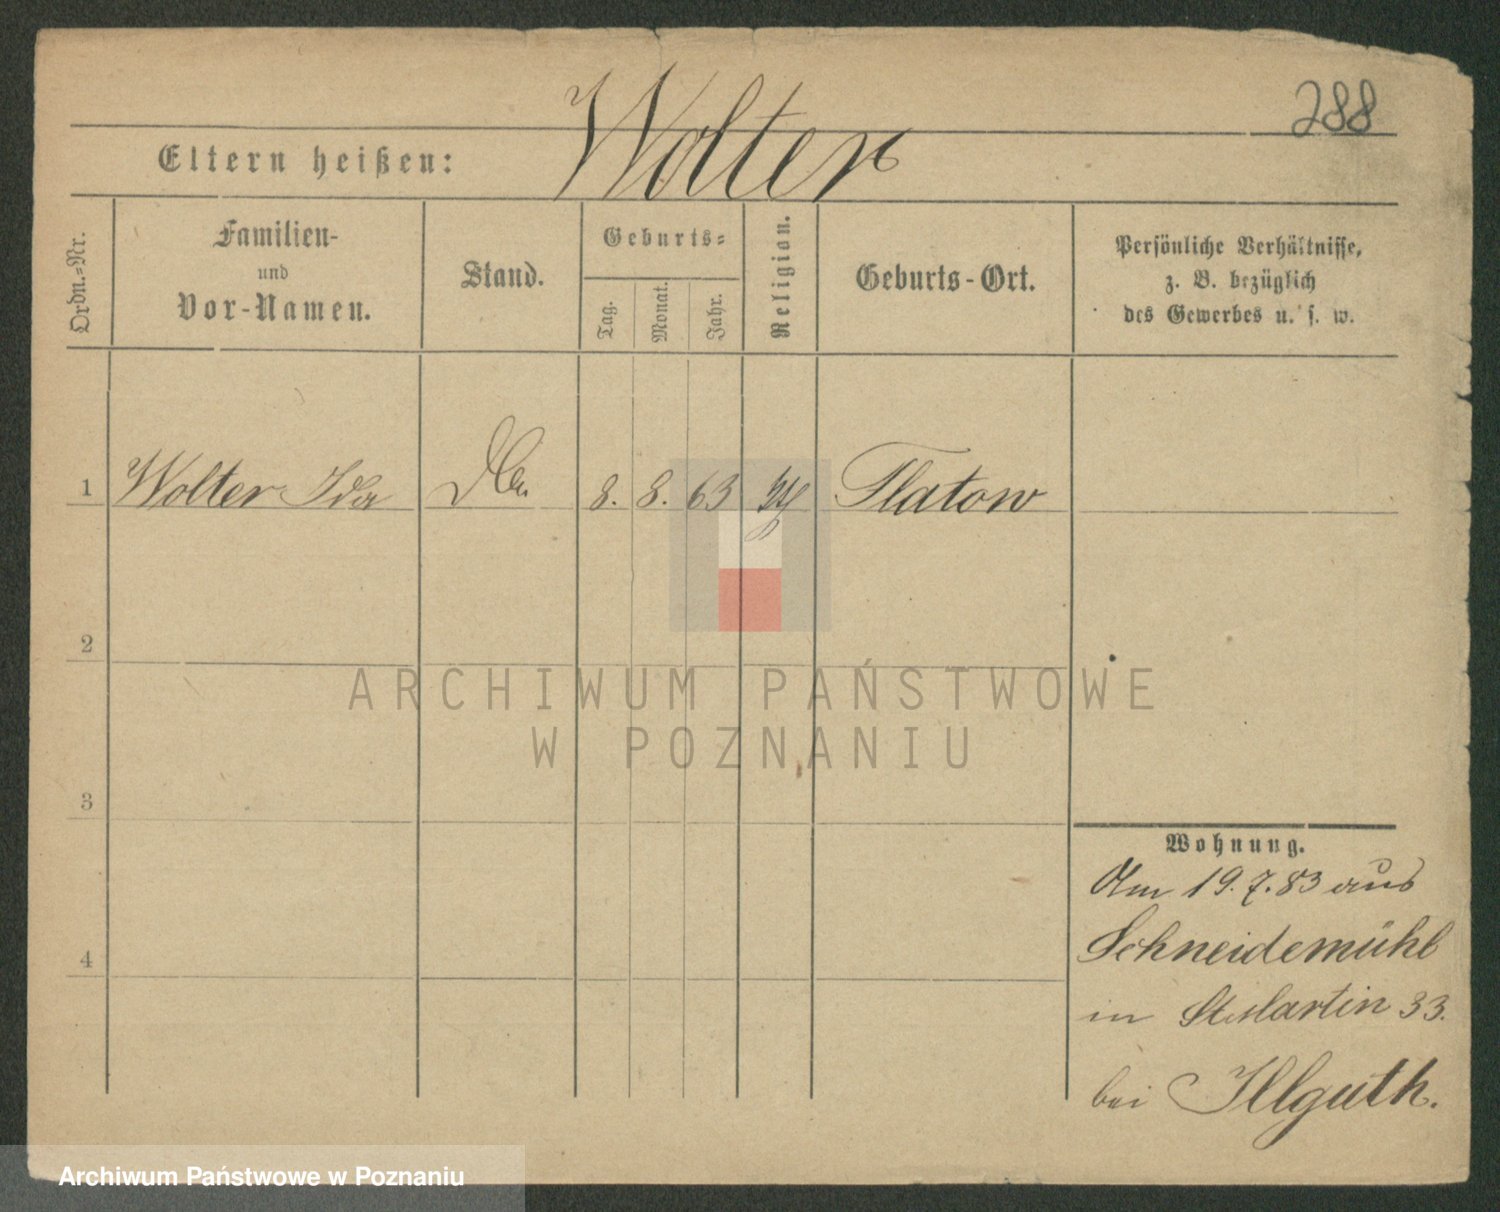 288
Wolter
Eltern heißen:
Ordn.=Nr.
Familien-
und
Vor-Namen.
Stand.
Geburts=
Tag.
Monat.
Jahr.
Religion.
Geburts-Ort.
Persönliche Verhältnisse,
z. B. bezüglich
des Gewerbes u. s. w.
1 Wolter Ida 8. 8. 63 Flatow
2
ARCHIWUM PAŃSTWOWE
W POZNANIU
3
Wohnung.
Am 19.7.83 aus
Schneidemühl
4
in St Martin 33.
bei Illguth.
Archiwum Państwowe w Poznaniu